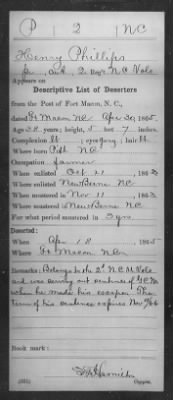 P 2 NC
Henry Phillips
Co. , 2 Reg't N.C. Vols
Appears on
Descriptive List of Deserters
from the Post of Fort Macon, N. C.,
dated Ft Macon N.C. Apr 30, 1865.
Age 38 years; height, 5 feet 7 inches.
Complexion ; eyes Gray; hair
Where born Pitt N.C.
Occupation farmer
When enlisted Oct 21 , 1863
Where enlisted New Berne N.C.
When mustered in Nov 11 , 1863
Where mustered in New Berne N.C.
For what period mustered in 3 yrs.
Deserted:
When Apr 18 , 1865
Where Ft Macon N.C.
Remarks: Belongs to the 2d N.C. U. Vols
and was serving out sentence of G.C.M.
when he made his escape. The
term of his sentence expires Nov 9/66
Book mark:
Hamilton
Copyist.